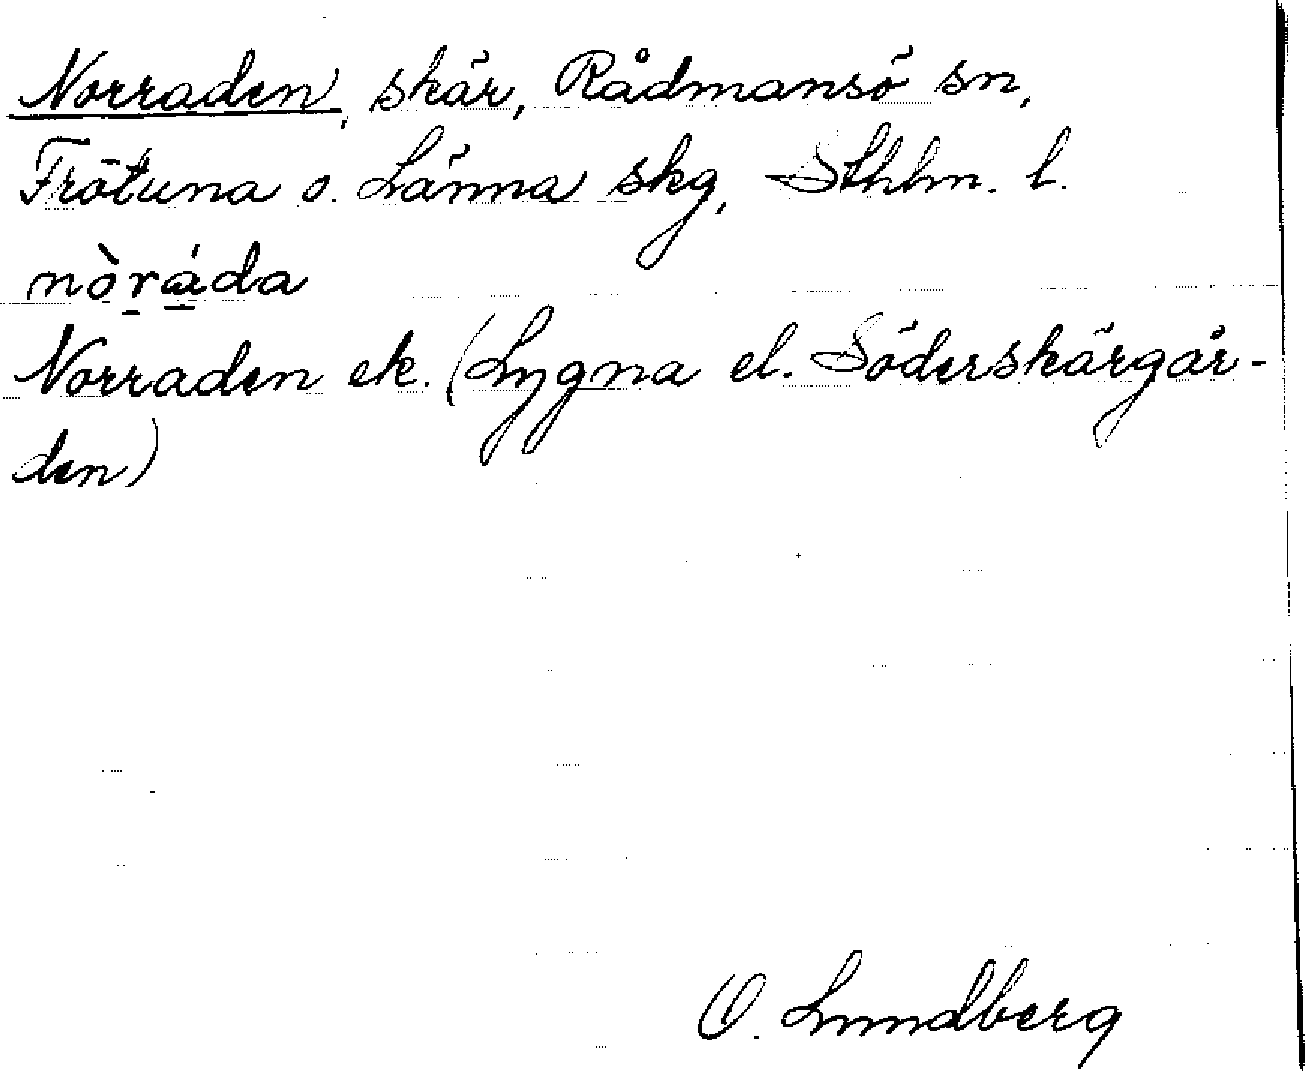 Norraden, skär, Rådmansö sn,
Frötuna o. Länna skg, Sthlm. l.
nòr̲á̲da
Norraden ek. (Lygna el. Söderskärgår-
den)
O. Lundberg